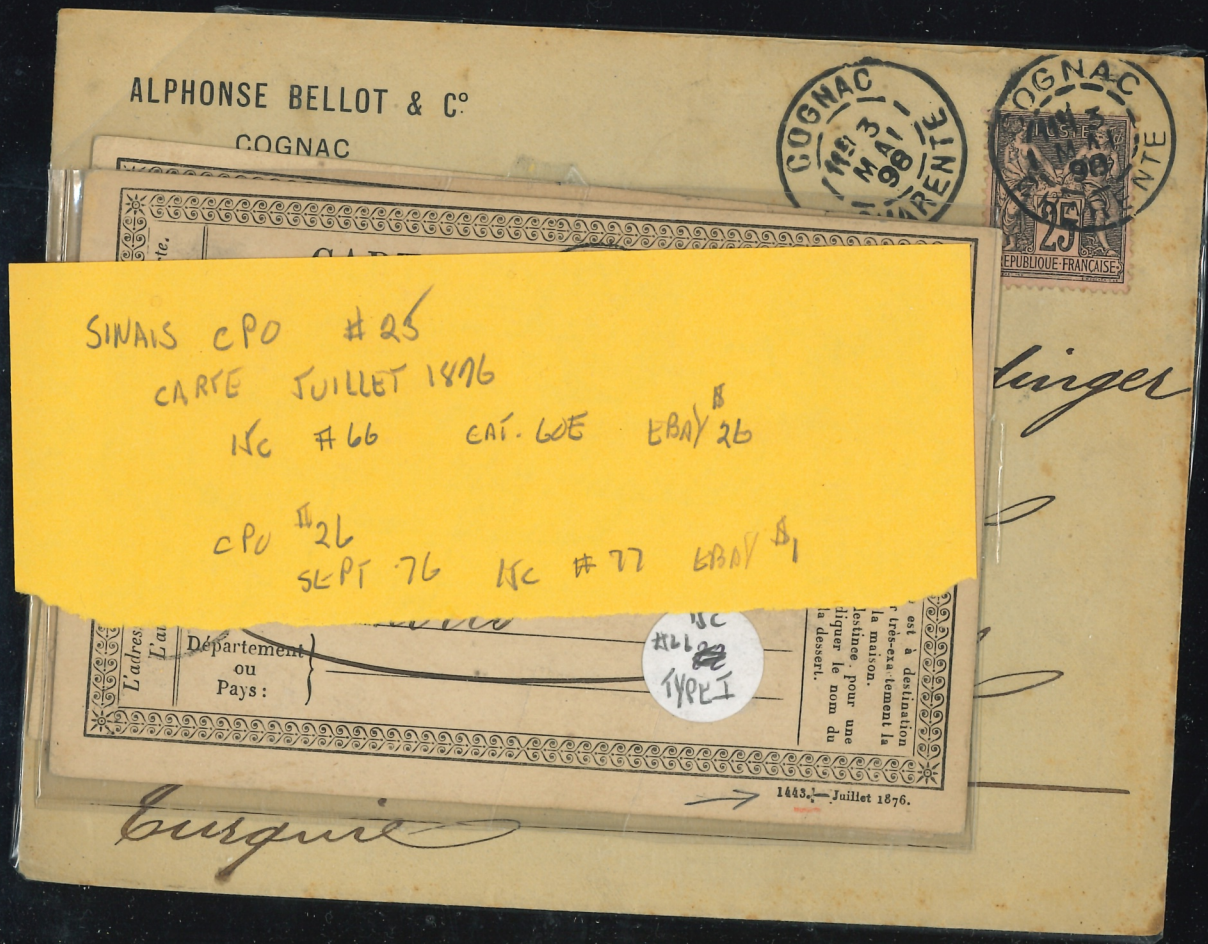 ALPHONSE BELLOT & Cº
COGNAC
COGNAC
3
MAI
98
CHARENTE
COGNAC
3
MAI
98
POSTE
25
REPUBLIQUE FRANÇAISE
dinger
rte.
CART
SINAIS CPO #25
CARTE JUILLET 1876
15c #66 CAT. 60E EBAY $26
CPO #26
SEPT 76 15c #77 EBAY $1
L'adres
L'au
Département
ou
Pays :
15c
TYPE I
est à destination
r très-exactement la
la maison.
destinée, pour une
diquer le nom du
la dessert.
1443. — Juillet 1876.
Turquie